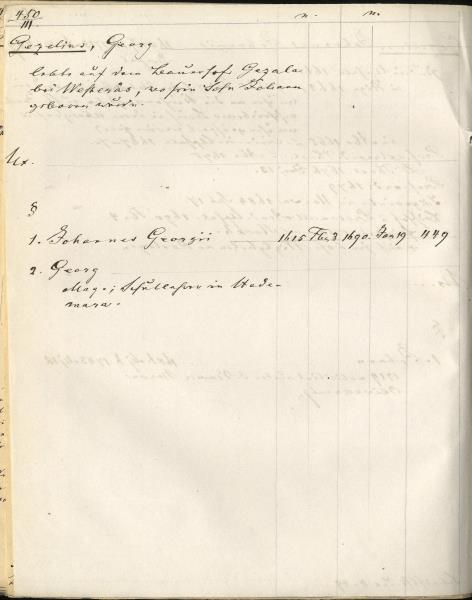 450
III.
n. n.
Gezelius, Georg
lebte auf dem Bauerhof Gezala
bei Westerås, wo sein Sohn Johann
geboren wurde.
Ux.
§
1. Johannes Georgii 1615 Fbr. 3 1690. Jan 19 449
2. Georg
Mag., Schullehrer in Hede-
mara.